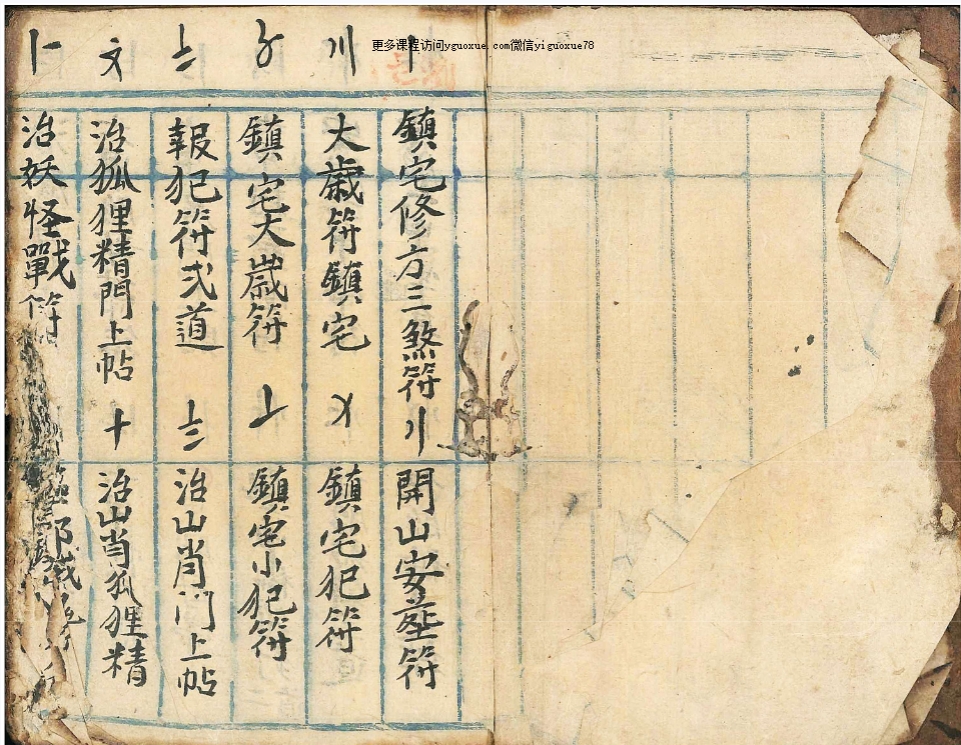 更多课程访问yguoxue.com微信yiguoxue78
〡
鎮宅修方三煞符
〢
開山安葬符
〣
大歲符鎮宅
〤
鎮宅犯符
〥
鎮宅大歲符
〦
鎮宅小犯符
〧
報犯符弍道
〨
治山肖门上帖
文
治狐狸精門上帖
十
治山肖狐狸精
治妖怪戰符